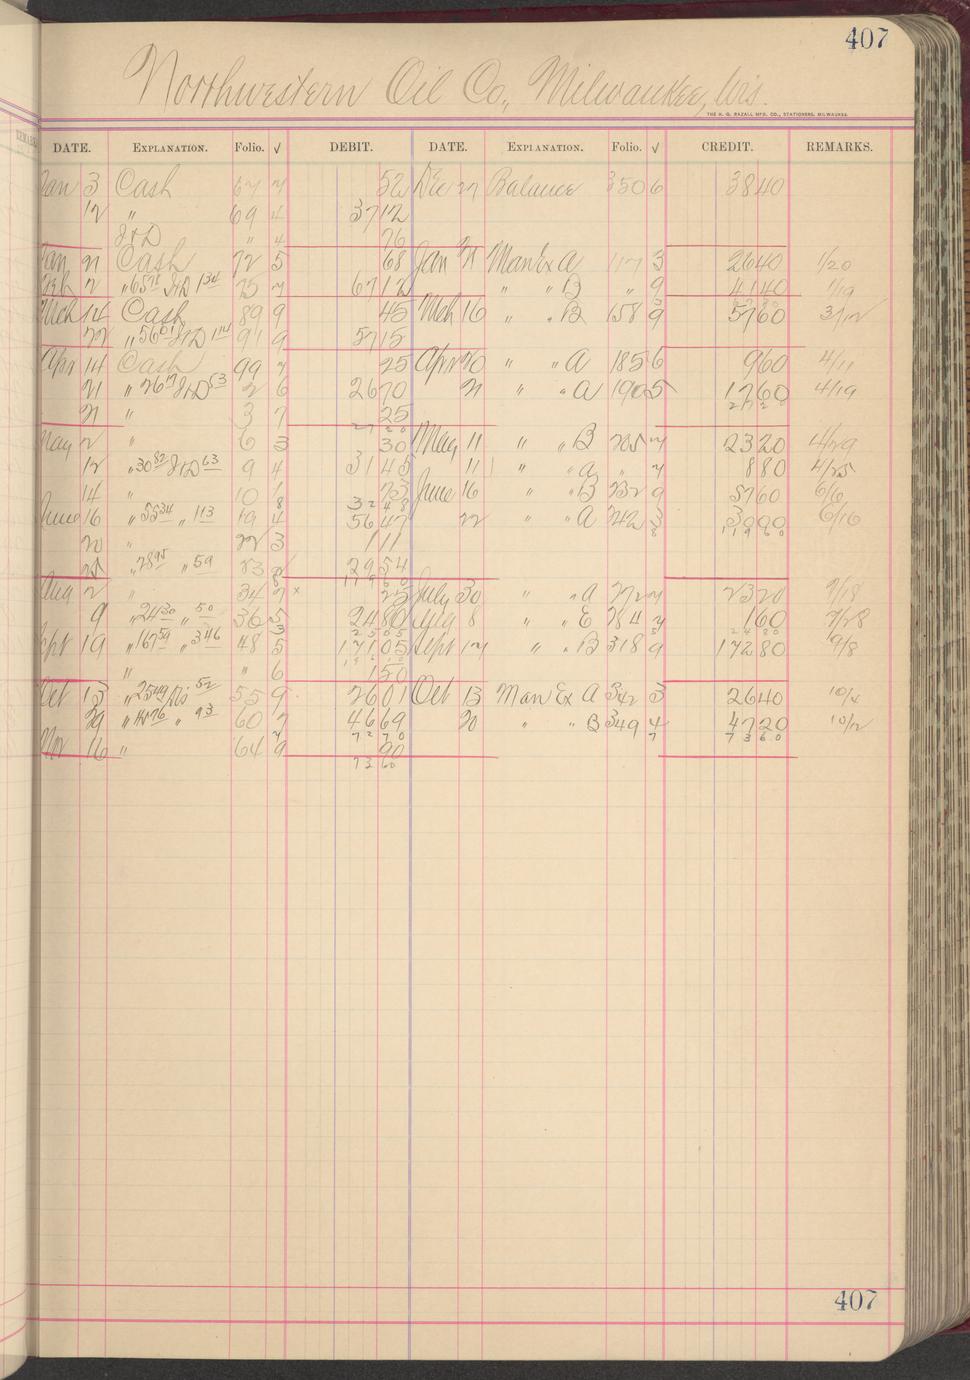 407
Northwestern Oil Co., Milwaukee, Wis.
THE H. G. RAZALL MFG. CO., STATIONERS, MILWAUKEE.
DATE. EXPLANATION. Folio. √ DEBIT. DATE. EXPLANATION. Folio. √ CREDIT. REMARKS.
Jan 3 Cash 67 7 52 Dec 27 Balance 350 6 3840
12 " 69 4 3712
I&D " 4 76
Jan 21 Cash 72 5 68 Jan 21 Man Ex A 117 3 2640 1/20
Feb 2 " 65 78 I&D 1 34 75 7 6712 " " B " 9 4140 1/19
Mch 14 Cash 89 9 45 Mch 16 " " B 158 9 5760 3/12
22 " 56 01 I&D 1 14 91 9 5715
Apr 14 Cash 99 7 25 Apr 20 " " A 185 6 960 4/11
21 " 26 17 I&D 53 2 6 2670 21 " " A 190 5 1760 4/19
21 " 3 7 25 2720
2720
May 2 " 6 3 30 May 11 " " B 205 7 2320 4/29
12 " 30 82 I&D 63 9 4 3145 11 " " A " 7 880 4/25
14 " 10 1 73 June 16 " " B 232 9 5760 6/6
3248
June 16 " 55 34 " 1 13 19 4 5647 22 " " A 242 3 3000 6/16
20 " 22 3 111 11960
25 " 28 95 " 59 23 2954
11960
Aug 2 " 34 7 × 25 July 30 " " A 272 7 2320 7/18
9 " 24 30 " 50 36 5 2480 Aug 8 " " E 284 7 160 7/28
2505 2480
Sept 19 " 167 59 " 3 46 48 5 17105 Sept 17 " " B 318 9 17280 9/8
" " 6 150
Oct 13 " 25 49 Dis 52 55 9 2601 Oct 13 Man Ex A 342 3 2640 10/4
29 " " 93 60 7 4669 20 " " B 349 4 4720 10/12
7270 7360
Nov 16 " 64 9 90
7360
407